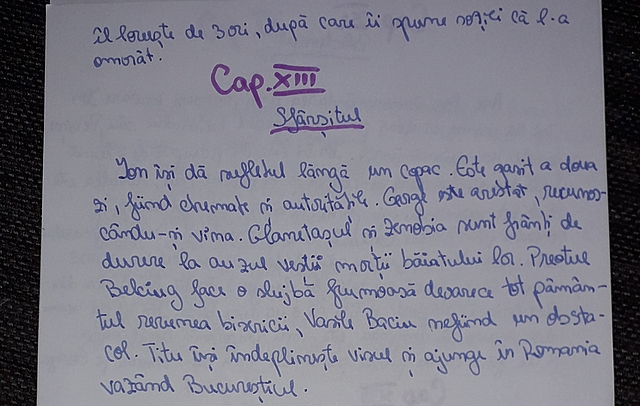 îl lovește de 3 ori, după care îi spune soției că l-a
omorât.
Cap. XIII
Sfârșitul
Ion își dă sufletul lângă un copac. Este gasit a doua
zi, fiind chemate și autoritățile. George este arestat, recunos-
cându-și vina. Glanetașul și Zenobia sunt frânți de
durere la auzul veștii morții băiatului lor. Preotul
Belciug face o slujbă frumoasă deoarece tot pămân-
tul revenea bisericii, Vasile Baciu nefiind un obsta-
col. Titu își îndeplinește visul și ajunge în Romania
vazând Bucureștiul.